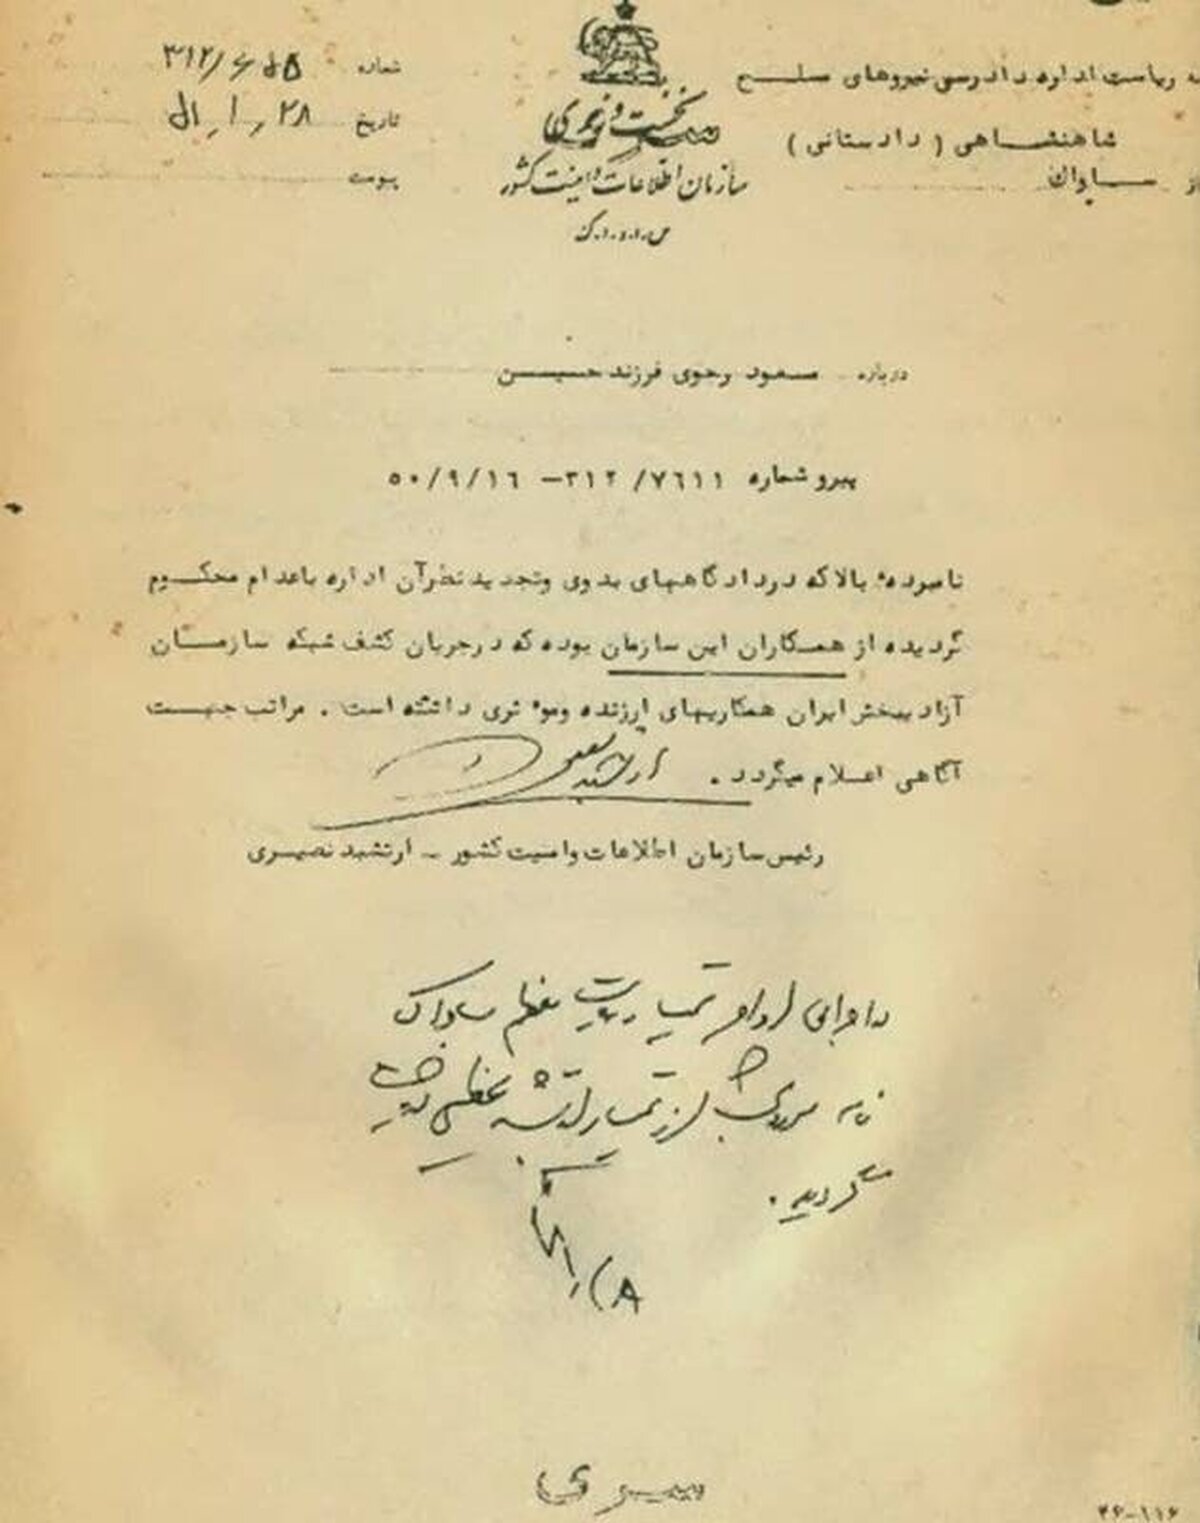 به ریاست اداره دادرسی نیروهای مسلح
شاهنشاهی (دادستانی)
از ساواک
نخست وزیری
سازمان اطلاعات و امنیت کشور
س.ا.و.ا.ک
شماره ۳۱۲/
تاریخ ۲۸ ر ۱ ر ۵۱
پیوست
درباره مسعود رجوی فرزند حسین
پیرو شماره ۷۶۱۱/ ۳۱۲ – ۵۰/۹/۱۶
نامبرده بالا که در دادگاههای بدوی و تجدید نظر آن اداره باعدام محکوم
گردیده از همکاران این سازمان بوده که در جریان کشف شبکه سازمان
آزاد یبخش ایران همکاریهای ارزنده و موثری داشته است . مراتب جهت
آگاهی اعلام میگردد .
رئیس سازمان اطلاعات و امنیت کشور - ارتشبد نصیری
ریاست معظم ساواک
نامه
گردید .
سری